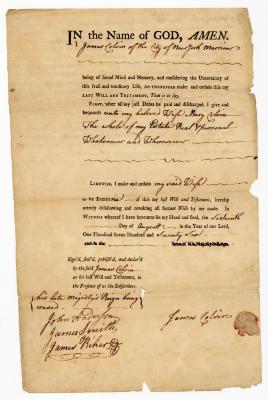 IN the Name of GOD, AMEN.
James Colvin of the City of New York Marriner
being of sound Mind and Memory, and considering the Uncertainty of
this frail and transitory Life, do THEREFORE make and ordain this my
LAST WILL AND TESTAMENT, That is to say,
FIRST, after all my just Debts be paid and discharged, I give and
bequeath unto my beloved Wife Mary Colvin
The whole of my Estate Real & personal
Whatsoever and Wheresoever
LIKEWISE, I make and ordain my said Wife
to be EXECUTRIX of this my last Will and Testament, hereby
utterly disallowing and revoking all former Wills by me made. In
WITNESS whereof I have hereunto set my Hand and Seal, the
Day of August in the Year of our Lord,
One Thousand Seven Hundred and Seventy Six
and in the
Sign'd, seal'd, publish'd, and declar'd
by the said James Colvin
as his last Will and Testament, in
the Presence of us the Subscribers.
his late majestys Reign being
erased
John Anderson
James Smith
James Riker
James Colvin